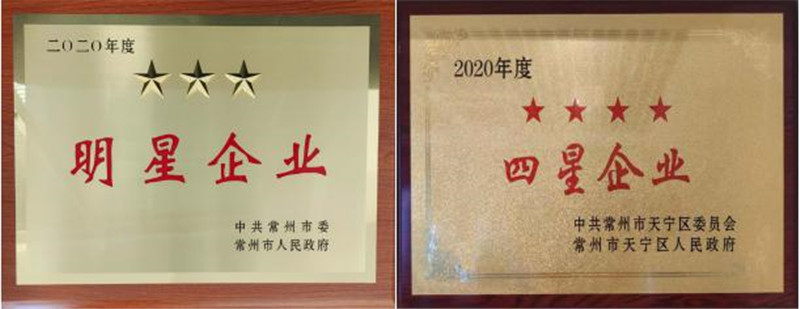 二〇二〇年度
明星企业
中共常州市委
常州市人民政府
2020年度
四星企业
中共常州市天宁区委员会
常州市天宁区人民政府